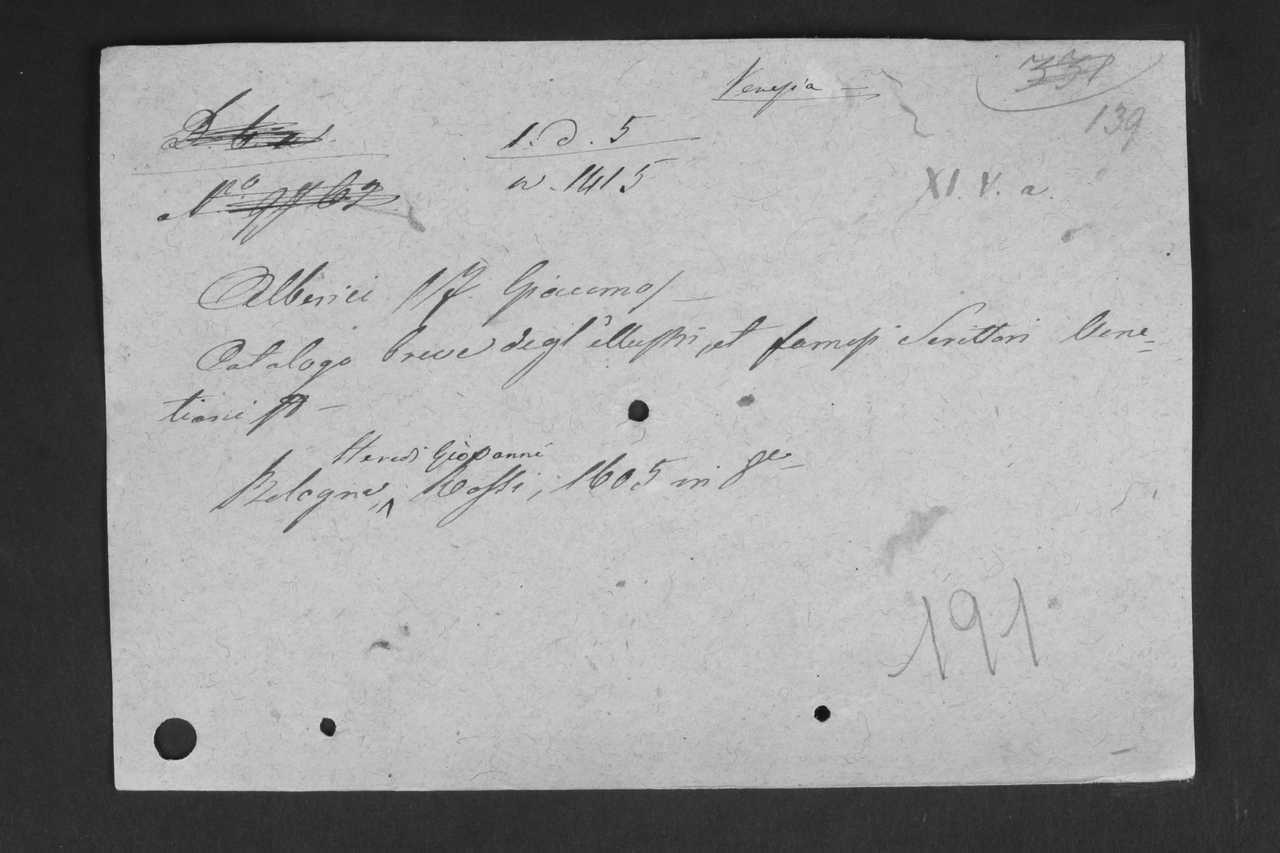 Venezia
139
1. d. 5
n. 1415
XI. V. a.
Alberici /f. Giacomo/
Catalogo breve degl'illustri, et famosi Scrittori Vene-
tiani
Heredi Giovanni
Bologna, Rossi, 1605 in 4º
191